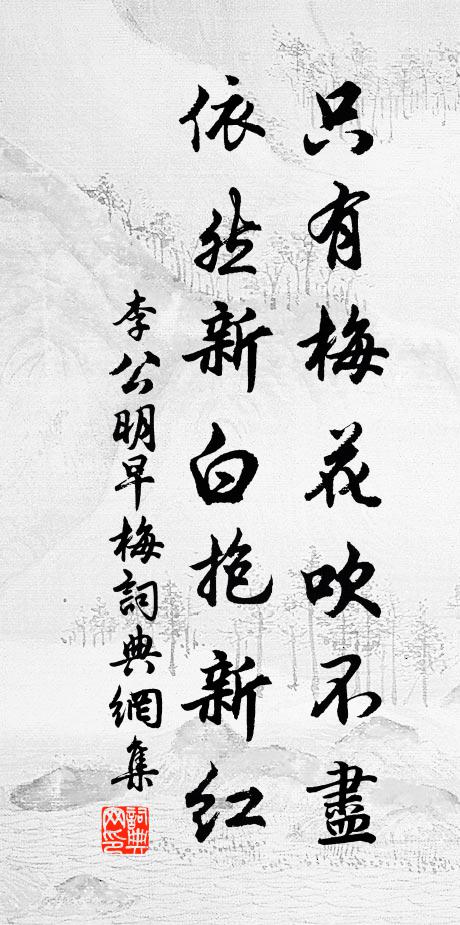 只有梅花吹不盡
依然新白抱新紅
李公明早梅詞典網集
詞典網印